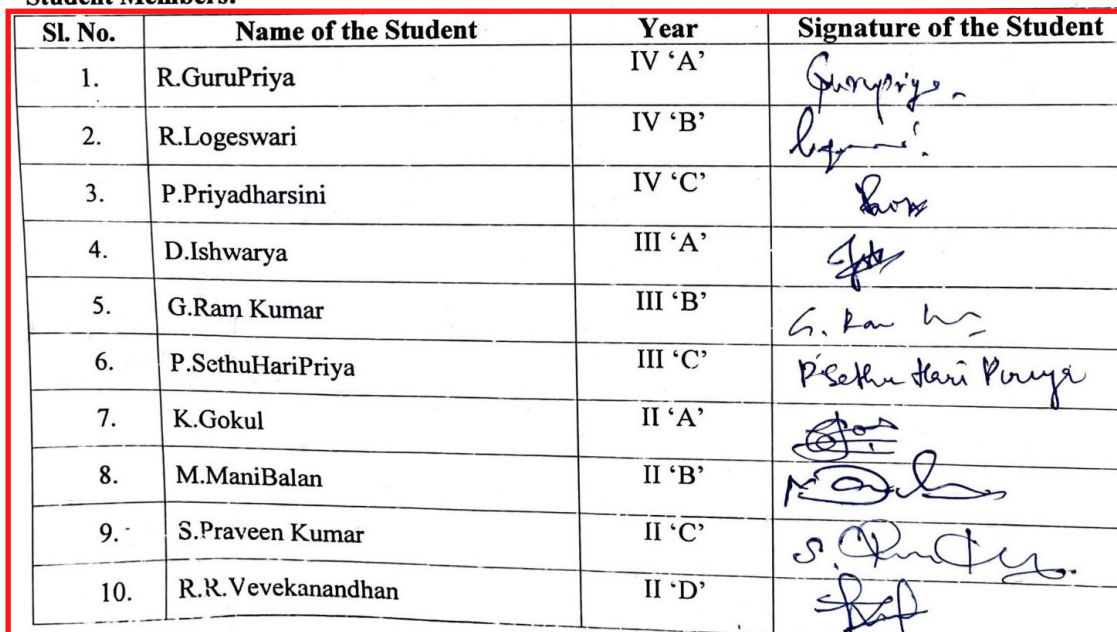 Student Members:
Sl. No. Name of the Student Year Signature of the Student
1. R.GuruPriya IV ‘A’ Gurupriya.
2. R.Logeswari IV ‘B’
3. P.Priyadharsini IV ‘C’
4. D.Ishwarya III ‘A’
5. G.Ram Kumar III ‘B’ G. Ram
6. P.SethuHariPriya III ‘C’ P.Sethu Hari Priya
7. K.Gokul II ‘A’
8. M.ManiBalan II ‘B’
9. S.Praveen Kumar II ‘C’
10. R.R.Vevekanandhan II ‘D’